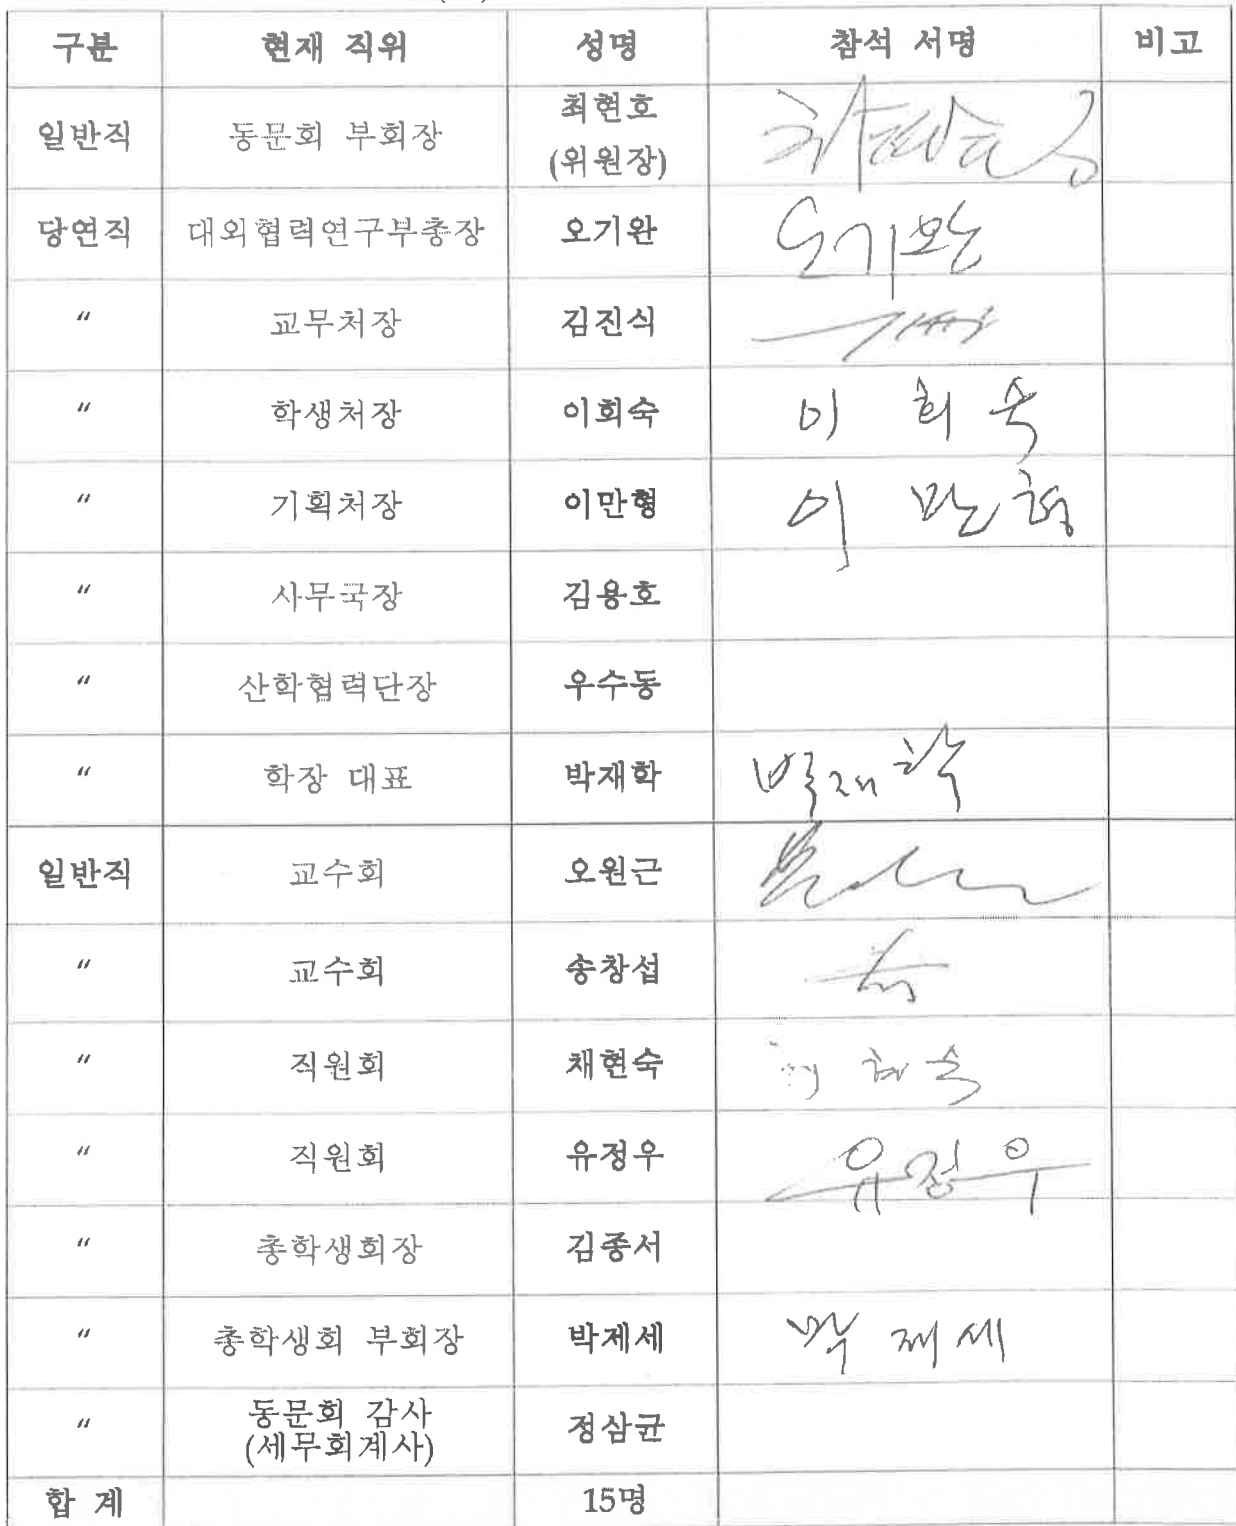 구분 현재 직위 성명 참석 서명 비고
일반직 동문회 부회장 최현호
(위원장)
당연직 대외협력연구부총장 오기완 오기완
〃 교무처장 김진식
〃 학생처장 이희숙 이 희 숙
〃 기획처장 이만형 이 만 형
〃 사무국장 김용호
〃 산학협력단장 우수동
〃 학장 대표 박재학 박재학
일반직 교수회 오원근
〃 교수회 송창섭
〃 직원회 채현숙
〃 직원회 유정우 유정우
〃 총학생회장 김종서
〃 총학생회 부회장 박제세 박 제 세
〃 동문회 감사
(세무회계사) 정삼균
합 계 15명